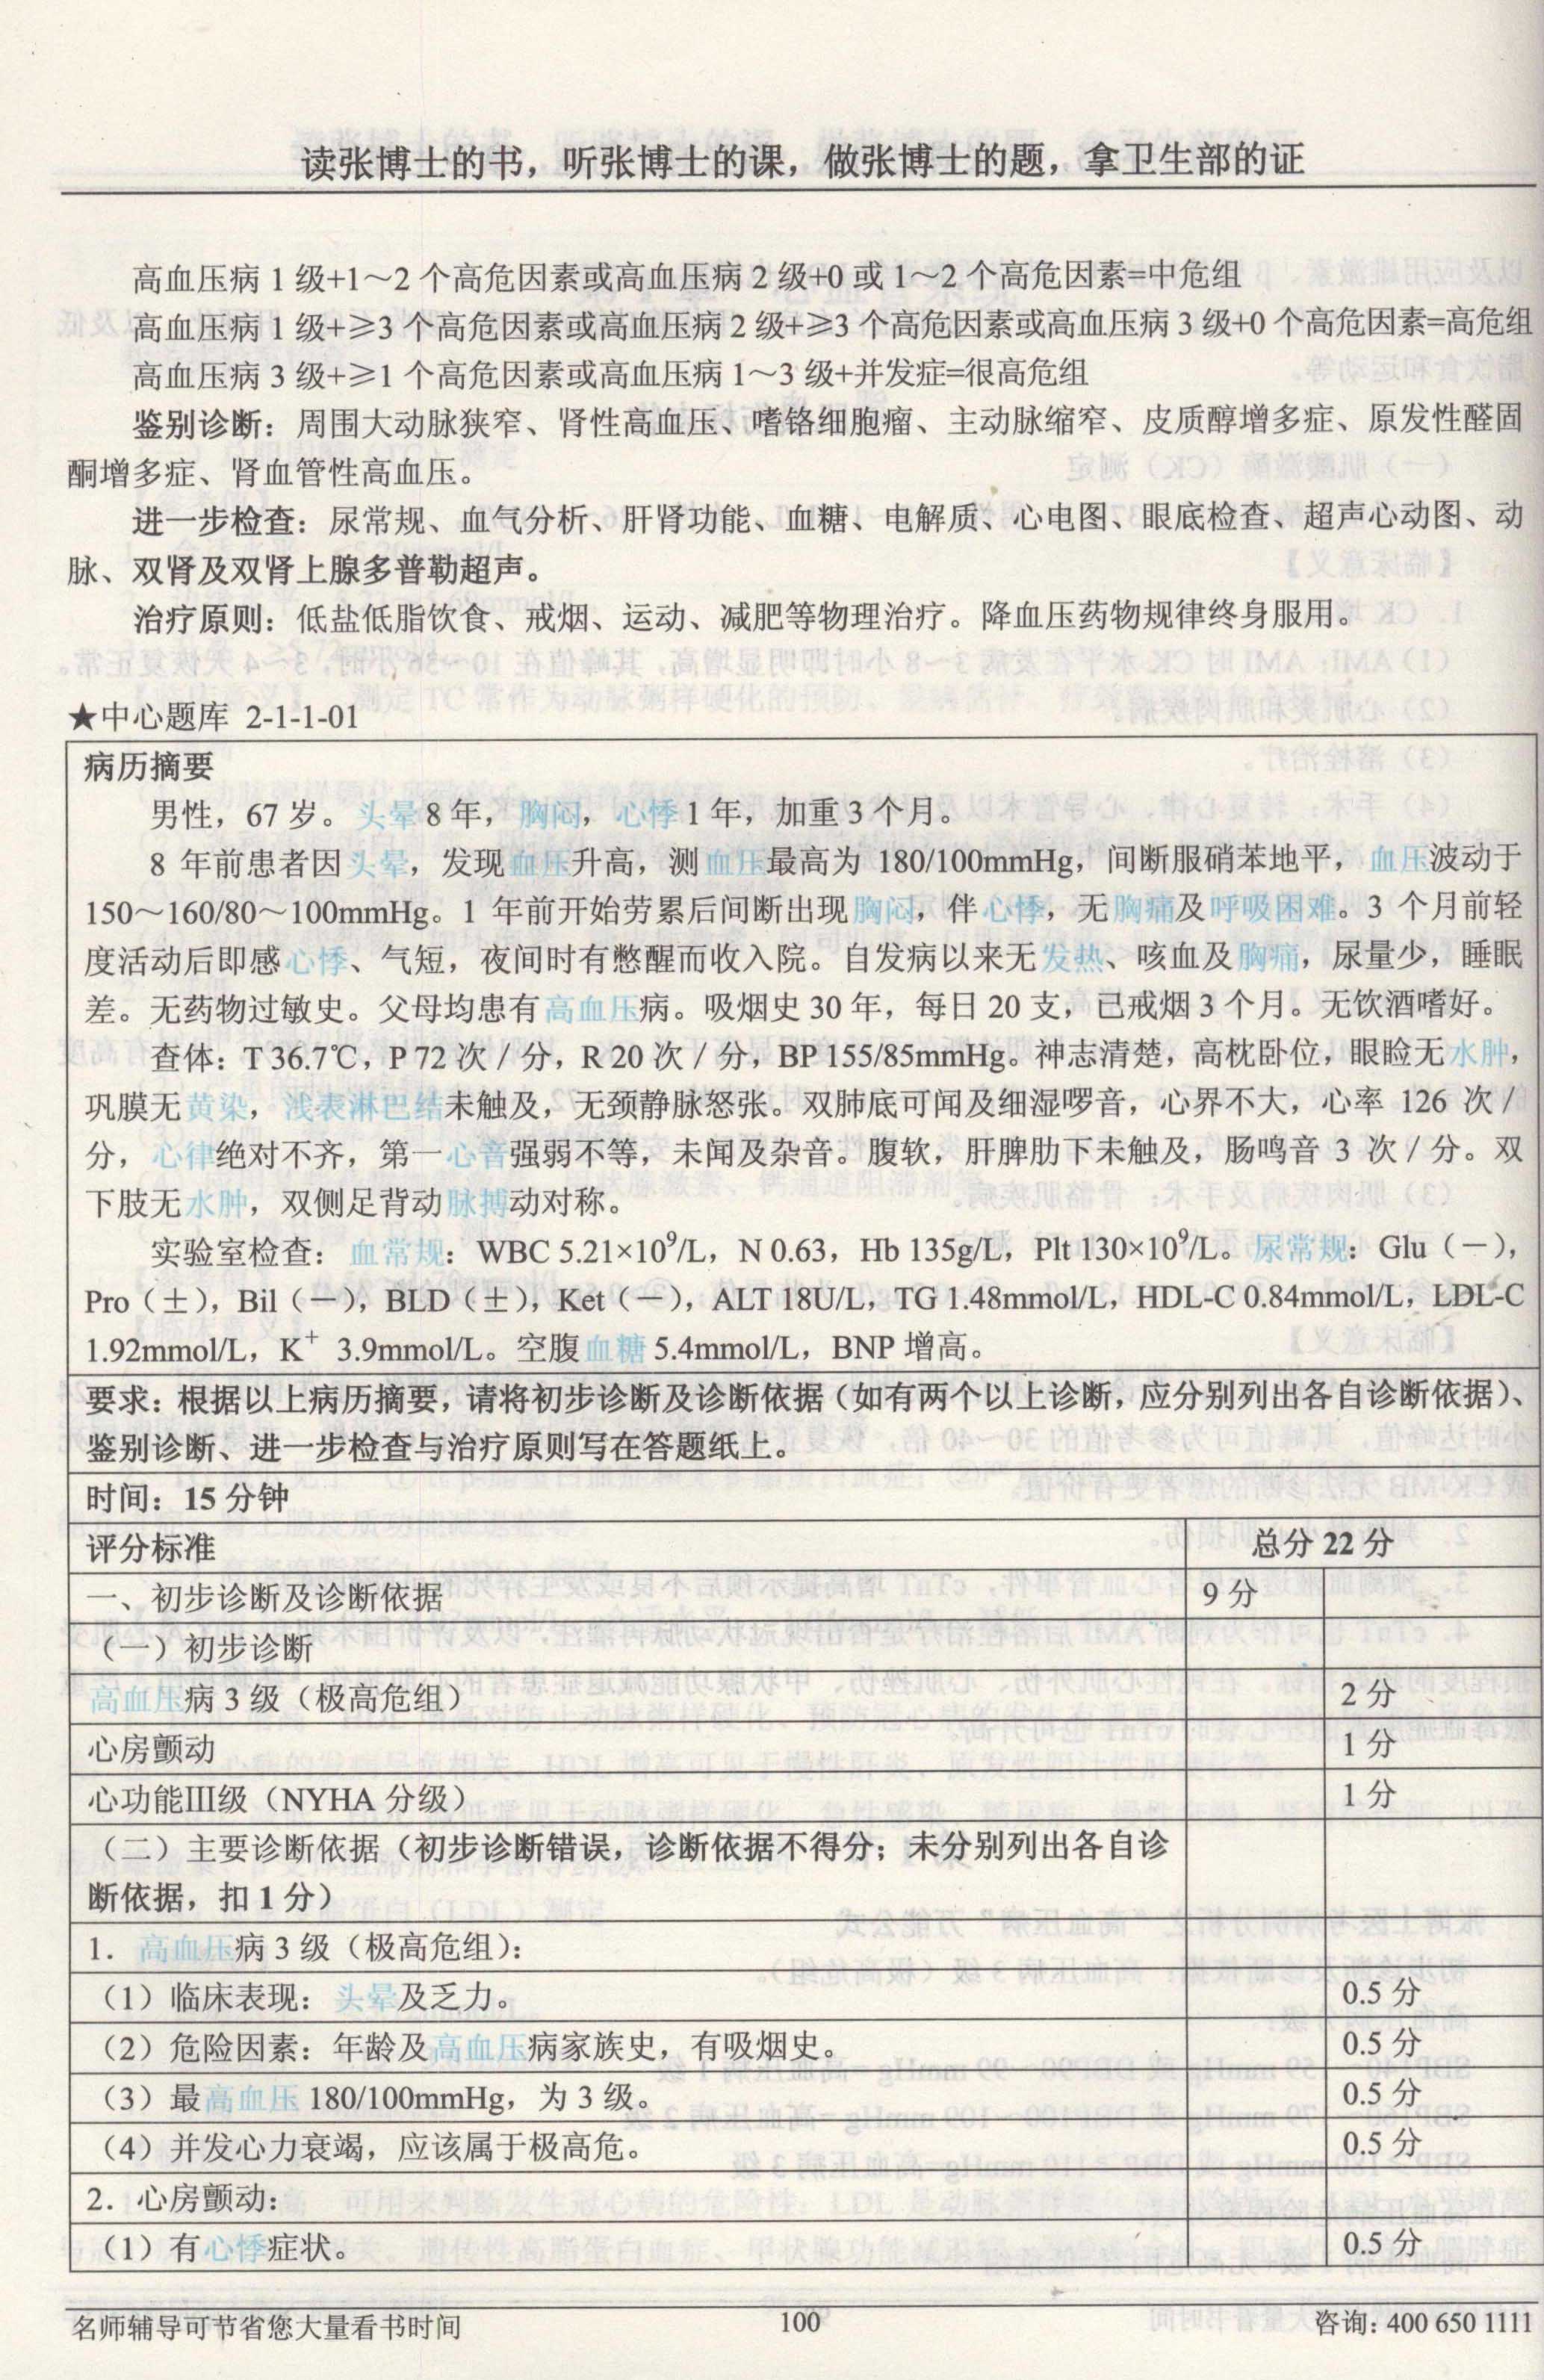 读张博士的书，听张博士的课，做张博士的题，拿卫生部的证
高血压病 1 级+1～2 个高危因素或高血压病 2 级+0 或 1～2 个高危因素=中危组
高血压病 1 级+≥3 个高危因素或高血压病 2 级+≥3 个高危因素或高血压病 3 级+0 个高危因素=高危组
高血压病 3 级+≥1 个高危因素或高血压病 1～3 级+并发症=很高危组
鉴别诊断：周围大动脉狭窄、肾性高血压、嗜铬细胞瘤、主动脉缩窄、皮质醇增多症、原发性醛固
酮增多症、肾血管性高血压。
进一步检查：尿常规、血气分析、肝肾功能、血糖、电解质、心电图、眼底检查、超声心动图、动
脉、双肾及双肾上腺多普勒超声。
治疗原则：低盐低脂饮食、戒烟、运动、减肥等物理治疗。降血压药物规律终身服用。
★中心题库 2-1-1-01
病历摘要
男性，67 岁。头晕 8 年，胸闷，心悸 1 年，加重 3 个月。
8 年前患者因头晕，发现血压升高，测血压最高为 180/100mmHg，间断服硝苯地平，血压波动于
150～160/80～100mmHg。1 年前开始劳累后间断出现胸闷，伴心悸，无胸痛及呼吸困难。3 个月前轻
度活动后即感心悸、气短，夜间时有憋醒而收入院。自发病以来无发热、咳血及胸痛，尿量少，睡眠
差。无药物过敏史。父母均患有高血压病。吸烟史 30 年，每日 20 支，已戒烟 3 个月。无饮酒嗜好。
查体：T 36.7℃，P 72 次／分，R 20 次／分，BP 155/85mmHg。神志清楚，高枕卧位，眼睑无水肿，
巩膜无黄染，浅表淋巴结未触及，无颈静脉怒张。双肺底可闻及细湿啰音，心界不大，心率 126 次／
分，心律绝对不齐，第一心音强弱不等，未闻及杂音。腹软，肝脾肋下未触及，肠鸣音 3 次／分。双
下肢无水肿，双侧足背动脉搏动对称。
实验室检查：血常规：WBC 5.21×10⁹/L，N 0.63，Hb 135g/L，Plt 130×10⁹/L。尿常规：Glu（－），
Pro（±），Bil（－），BLD（±），Ket（－），ALT 18U/L，TG 1.48mmol/L，HDL-C 0.84mmol/L，LDL-C
1.92mmol/L，K⁺ 3.9mmol/L。空腹血糖 5.4mmol/L，BNP 增高。
要求：根据以上病历摘要，请将初步诊断及诊断依据（如有两个以上诊断，应分别列出各自诊断依据）、
鉴别诊断、进一步检查与治疗原则写在答题纸上。
时间：15 分钟
评分标准 总分 22 分
一、初步诊断及诊断依据 9 分
（一）初步诊断
高血压病 3 级（极高危组） 2 分
心房颤动 1 分
心功能Ⅲ级（NYHA 分级） 1 分
（二）主要诊断依据（初步诊断错误，诊断依据不得分；未分别列出各自诊
断依据，扣 1 分）
1．高血压病 3 级（极高危组）：
（1）临床表现：头晕及乏力。 0.5 分
（2）危险因素：年龄及高血压病家族史，有吸烟史。 0.5 分
（3）最高血压 180/100mmHg，为 3 级。 0.5 分
（4）并发心力衰竭，应该属于极高危。 0.5 分
2．心房颤动：
（1）有心悸症状。 0.5 分
名师辅导可节省您大量看书时间 100 咨询：400 650 1111